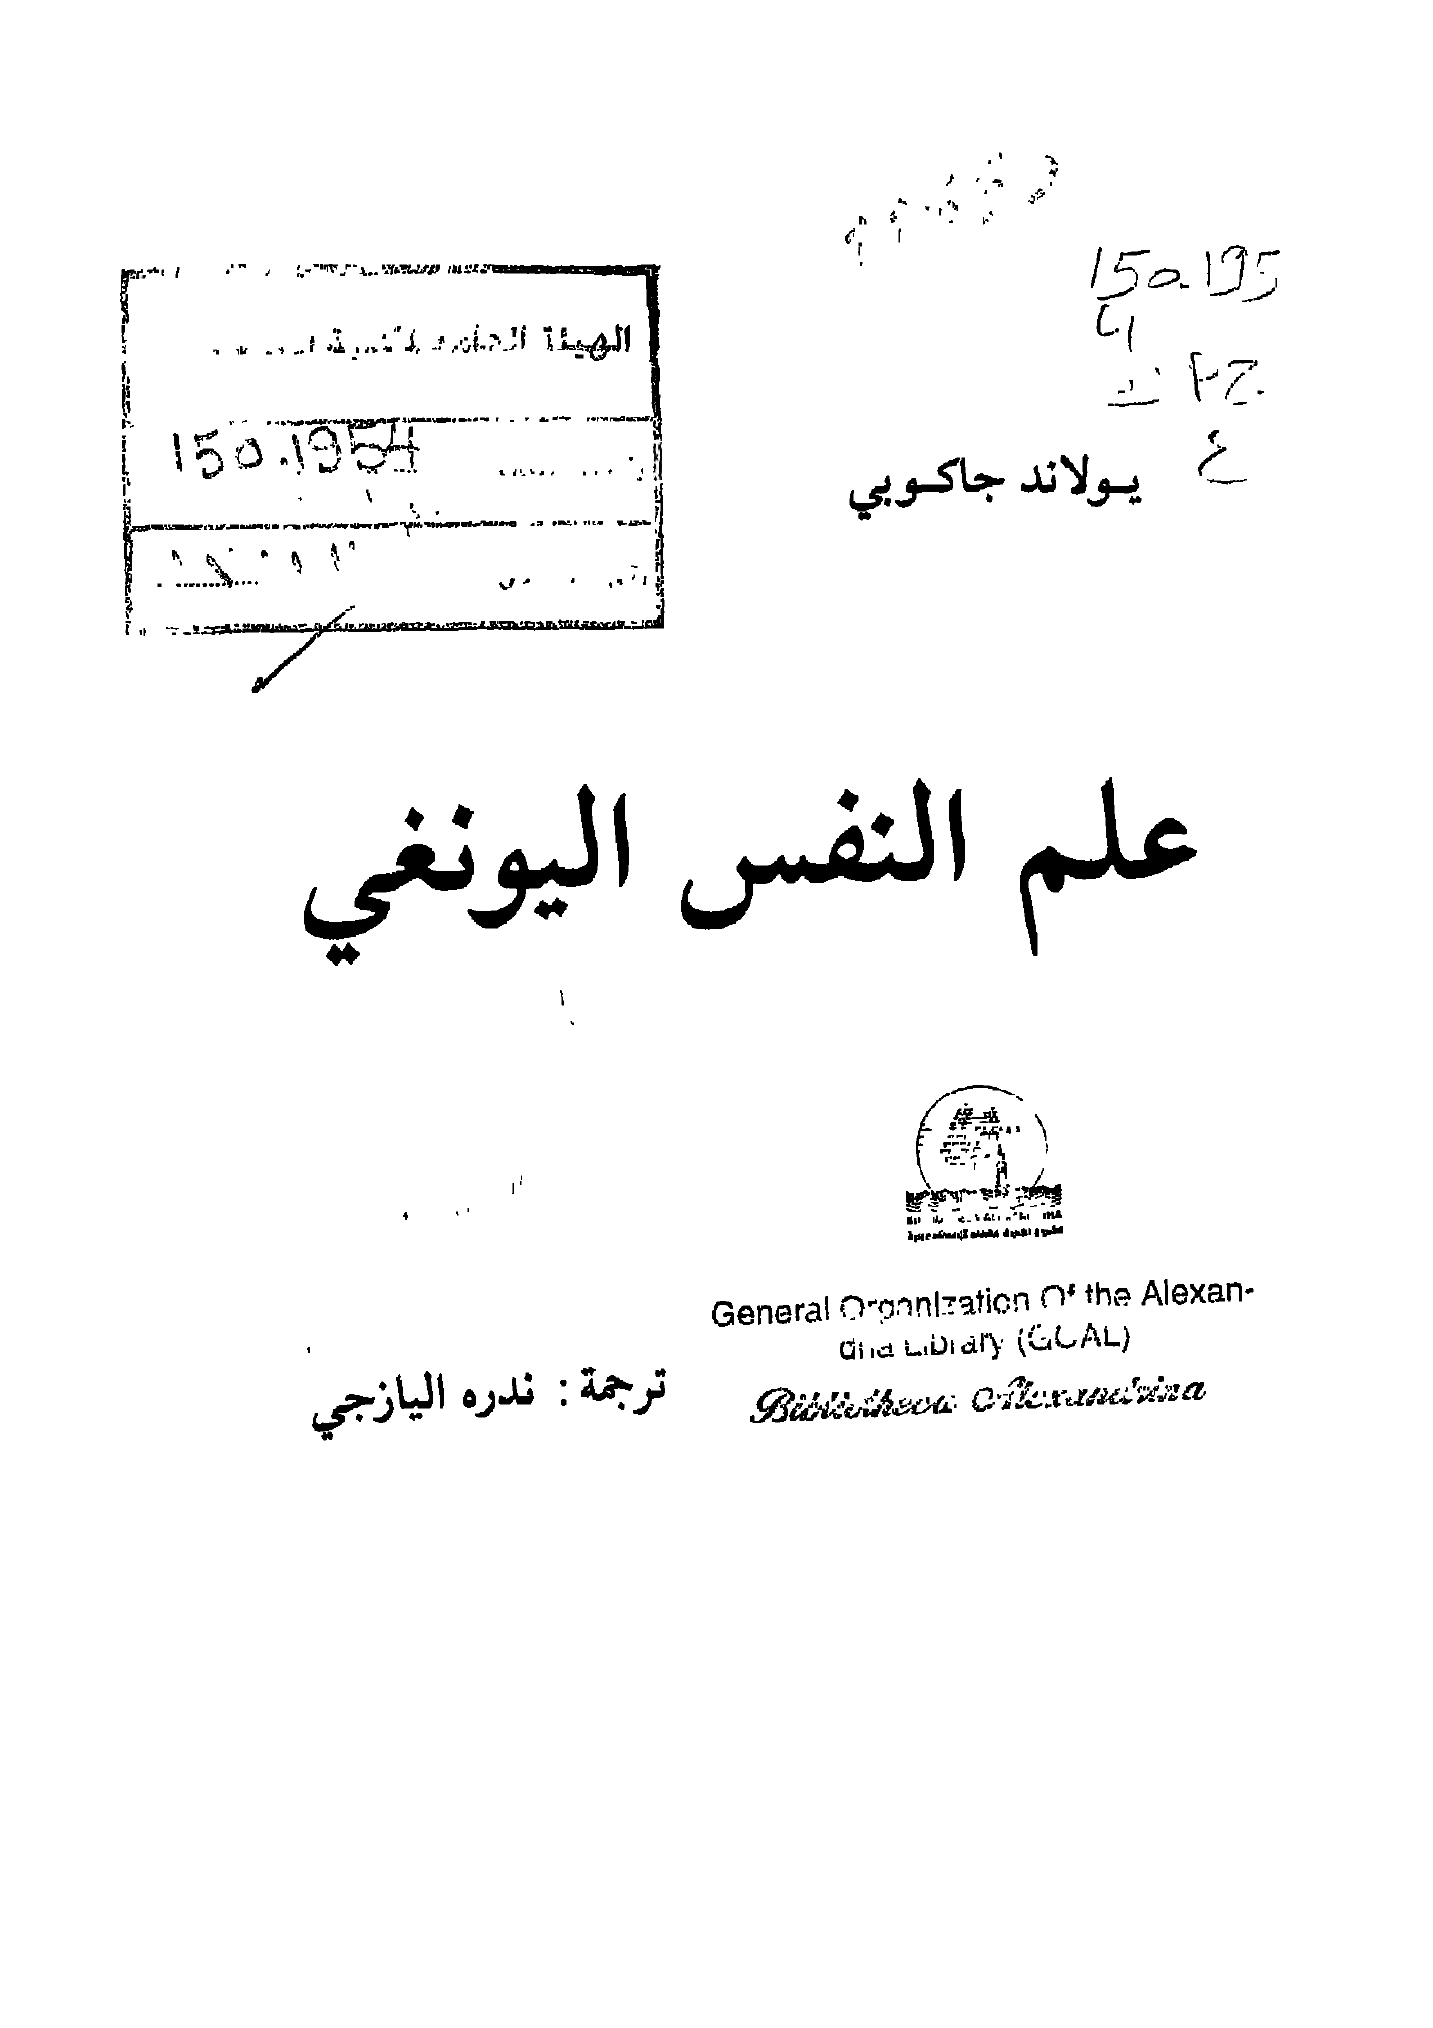 150.195
4
يـولاند جاكـوبي
الهيئة العامة
150.1954
علم النفس اليونغي
General Organization Of the Alexan-
dria Library (GOAL)
Bibliotheca Alexandrina
ترجمة : ندره اليازجي